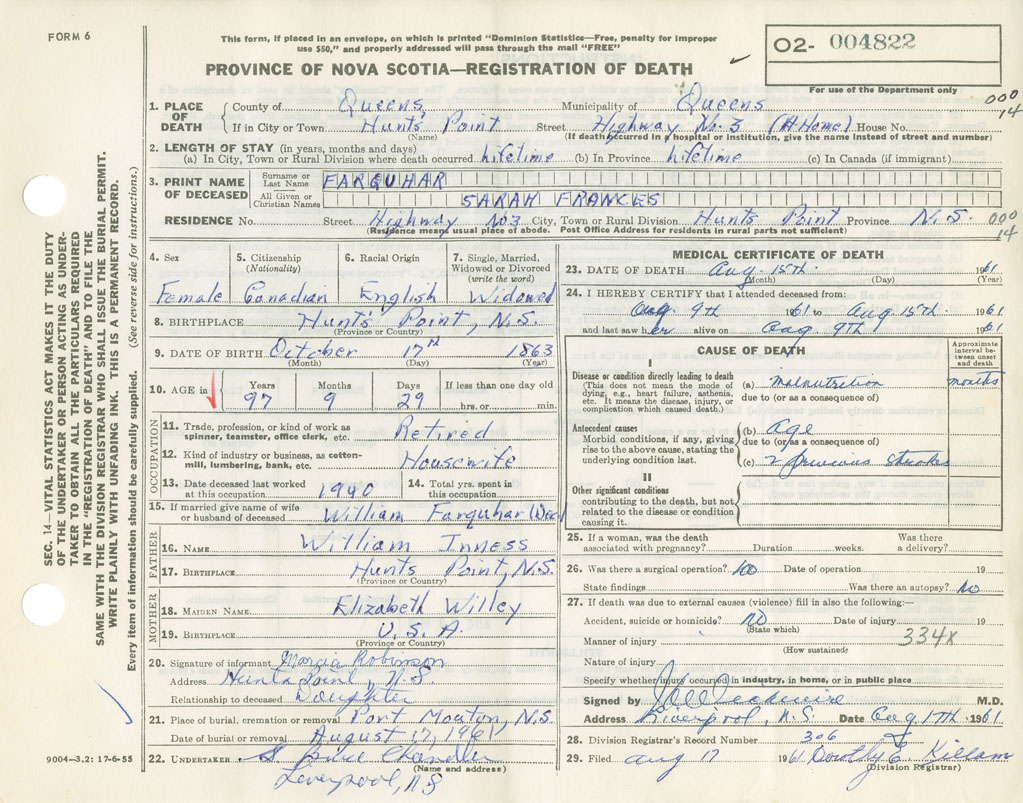 FORM 6
This form, if placed in an envelope, on which is printed "Dominion Statistics—Free, penalty for improper
use $50," and properly addressed will pass through the mail "FREE"
PROVINCE OF NOVA SCOTIA—REGISTRATION OF DEATH
02- 004822
For use of the Department only
000
14
SEC. 14—VITAL STATISTICS ACT MAKES IT THE DUTY
OF THE UNDERTAKER OR PERSON ACTING AS UNDER-
TAKER TO OBTAIN ALL THE PARTICULARS REQUIRED
IN THE "REGISTRATION OF DEATH" AND TO FILE THE
SAME WITH THE DIVISION REGISTRAR WHO SHALL ISSUE THE BURIAL PERMIT.
WRITE PLAINLY WITH UNFADING INK. THIS IS A PERMANENT RECORD.
Every item of information should be carefully supplied. (See reverse side for instructions.)
1. PLACE OF DEATH County of Queens, Municipality of Queens
If in City or Town Hunts Point Street Highway No. 3 (At Home) House No.
(Name) (If death occurred in a hospital or institution, give the name instead of street and number)
2. LENGTH OF STAY (in years, months and days)
(a) In City, Town or Rural Division where death occurred lifetime (b) In Province lifetime (c) In Canada (if immigrant)
3. PRINT NAME OF DECEASED Surname or Last Name FARQUHAR
All Given or Christian Names SARAH FRANCES
RESIDENCE No. Street Highway No3 City, Town or Rural Division Hunts Point Province N.S. 000
14
(Residence means usual place of abode. Post Office Address for residents in rural parts not sufficient)
4. Sex 5. Citizenship (Nationality) 6. Racial Origin 7. Single, Married, Widowed or Divorced (write the word)
Female Canadian English Widowed
8. BIRTHPLACE Hunts Point, N.S.
(Province or Country)
9. DATE OF BIRTH October 17th 1863
(Month) (Day) (Year)
10. AGE in Years Months Days If less than one day old
97 9 29 hrs. or min.
OCCUPATION
11. Trade, profession, or kind of work as spinner, teamster, office clerk, etc. Retired
12. Kind of industry or business, as cotton-mill, lumbering, bank, etc. Housewife
13. Date deceased last worked at this occupation 1940 14. Total yrs. spent in this occupation
15. If married give name of wife or husband of deceased William Farquhar (Dec)
FATHER
16. NAME William Inness
17. BIRTHPLACE Hunts Point, N.S.
(Province or Country)
MOTHER
18. MAIDEN NAME Elizabeth Willey
19. BIRTHPLACE U.S.A.
(Province or Country)
20. Signature of informant Marcia Robinson
Address Hunts Point, N.S.
Relationship to deceased Daughter
21. Place of burial, cremation or removal Port Mouton, N.S.
Date of burial or removal August 17, 1961
22. UNDERTAKER Chandler
(Name and address)
Liverpool, N.S
9004—3.2: 17-6-55
MEDICAL CERTIFICATE OF DEATH
23. DATE OF DEATH Aug. 15th 1961
(Month) (Day) (Year)
24. I HEREBY CERTIFY that I attended deceased from:
Aug 9th 1961 to Aug 15th 1961
and last saw her alive on Aug 9th 1961
CAUSE OF DEATH
Approximate interval between onset and death
I
Disease or condition directly leading to death
(This does not mean the mode of dying, e.g., heart failure, asthenia, etc. It means the disease, injury, or complication which caused death.)
(a) malnutrition months
due to (or as a consequence of)
Antecedent causes
Morbid conditions, if any, giving rise to the above cause, stating the underlying condition last.
(b) age
due to (or as a consequence of)
(c) 2 previous strokes
II
Other significant conditions
contributing to the death, but not related to the disease or condition causing it.
25. If a woman, was the death associated with pregnancy? Duration weeks. Was there a delivery?
26. Was there a surgical operation? No Date of operation 19
State findings Was there an autopsy? No
27. If death was due to external causes (violence) fill in also the following:—
Accident, suicide or homicide? No Date of injury 19
(State which)
Manner of injury 334X
(How sustained)
Nature of injury
Specify whether injury occurred in industry, in home, or in public place
Signed by M.D.
Address Liverpool, N.S. Date Aug 17th 1961
28. Division Registrar's Record Number 306
29. Filed Aug 17 1961 Dorothy E Killam
(Division Registrar)